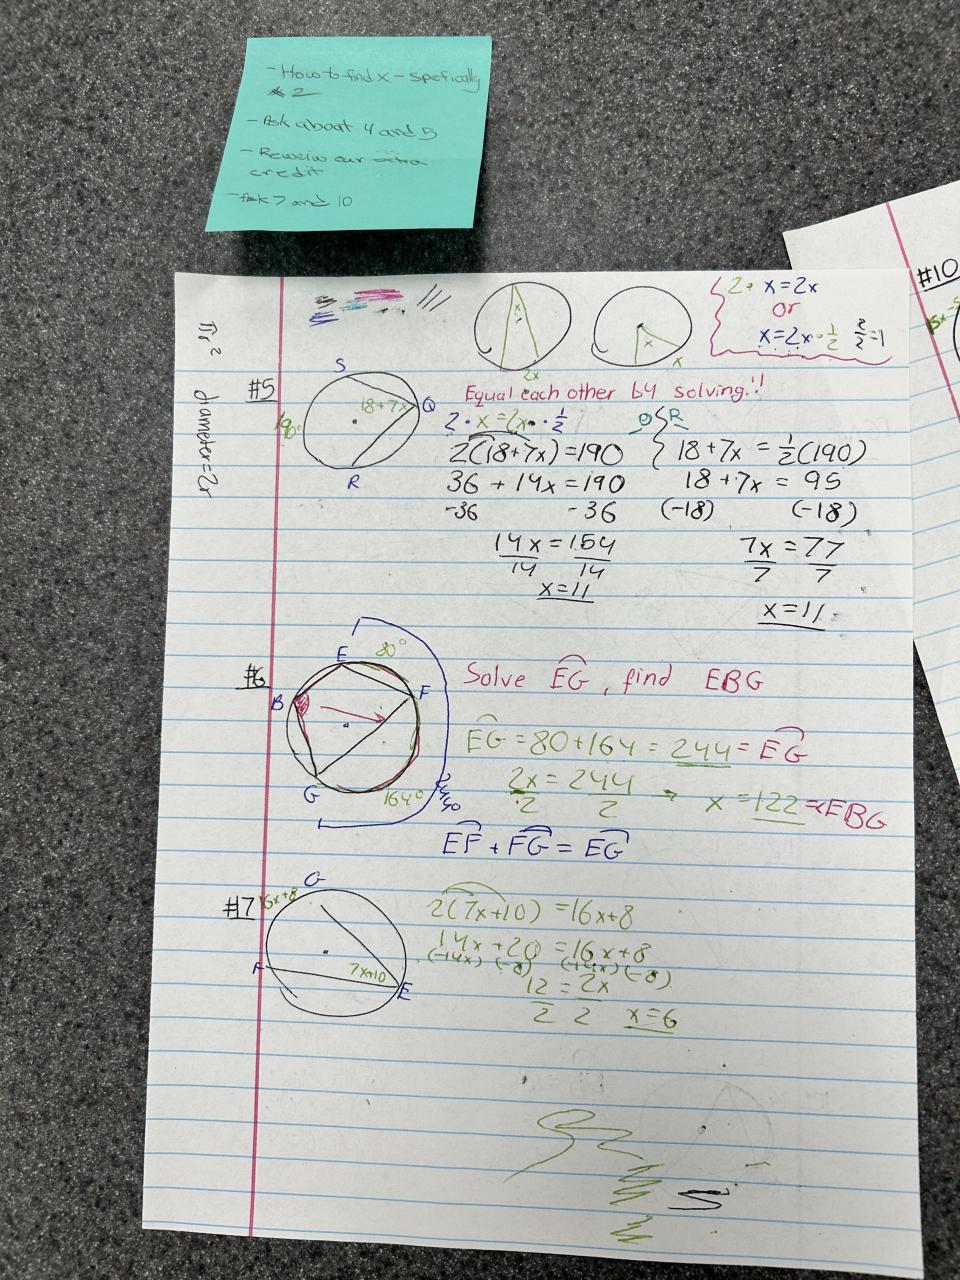 - How to find x - spefically
# 2
- Ask about 4 and 5
- Reweiw our extra
credit
- Ask 7 and 10
#10
πr²
diameter=2r
x
2x
x
x
2· x=2x
or
x=2x·½ 2/2=1
#5
S
18+7x
Q
190°
R
Equal each other by solving!!
2·x=2x·½
OR
2(18+7x)=190
36+14x=190
-36 -36
14x=154
14 14
x=11
18+7x=½(190)
18+7x=95
(-18) (-18)
7x=77
7 7
x=11
#6
E
80°
F
B
G
164°
Solve EG, find EBG
EG=80+164=244=EG
2x=244
2 2
→ x=122=EBG
EF+FG=EG
#7
G
16x+8
F
7x+10
E
2(7x+10)=16x+8
14x+20=16x+8
(-14x) (-8) (-14x) (-8)
12=2x
2 2
x=6